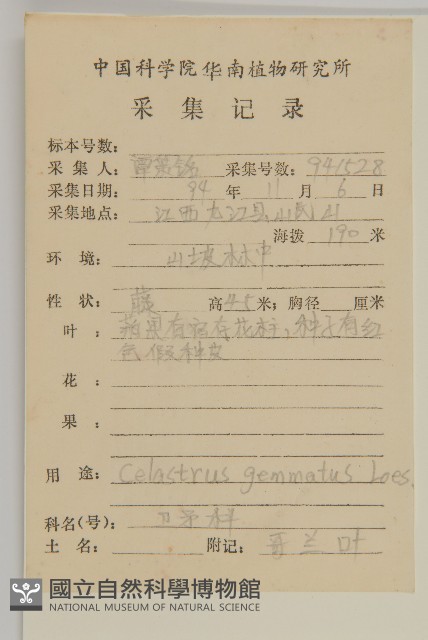 中国科学院华南植物研究所
采集记录
标本号数：
采集人：谭策铭 采集号数：941528
采集日期：94年11月6日
采集地点：江西九江县岷山
海拨190米
环境：山坡林中
性状：藤 高4.5米；胸径 厘米
叶：蒴果有宿存花柱，种子有红
色假种皮
花：
果：
用途：Celastrus gemmatus Loes.
科名(号)：卫矛科
土名： 附记：哥兰叶
國立自然科學博物館
NATIONAL MUSEUM OF NATURAL SCIENCE